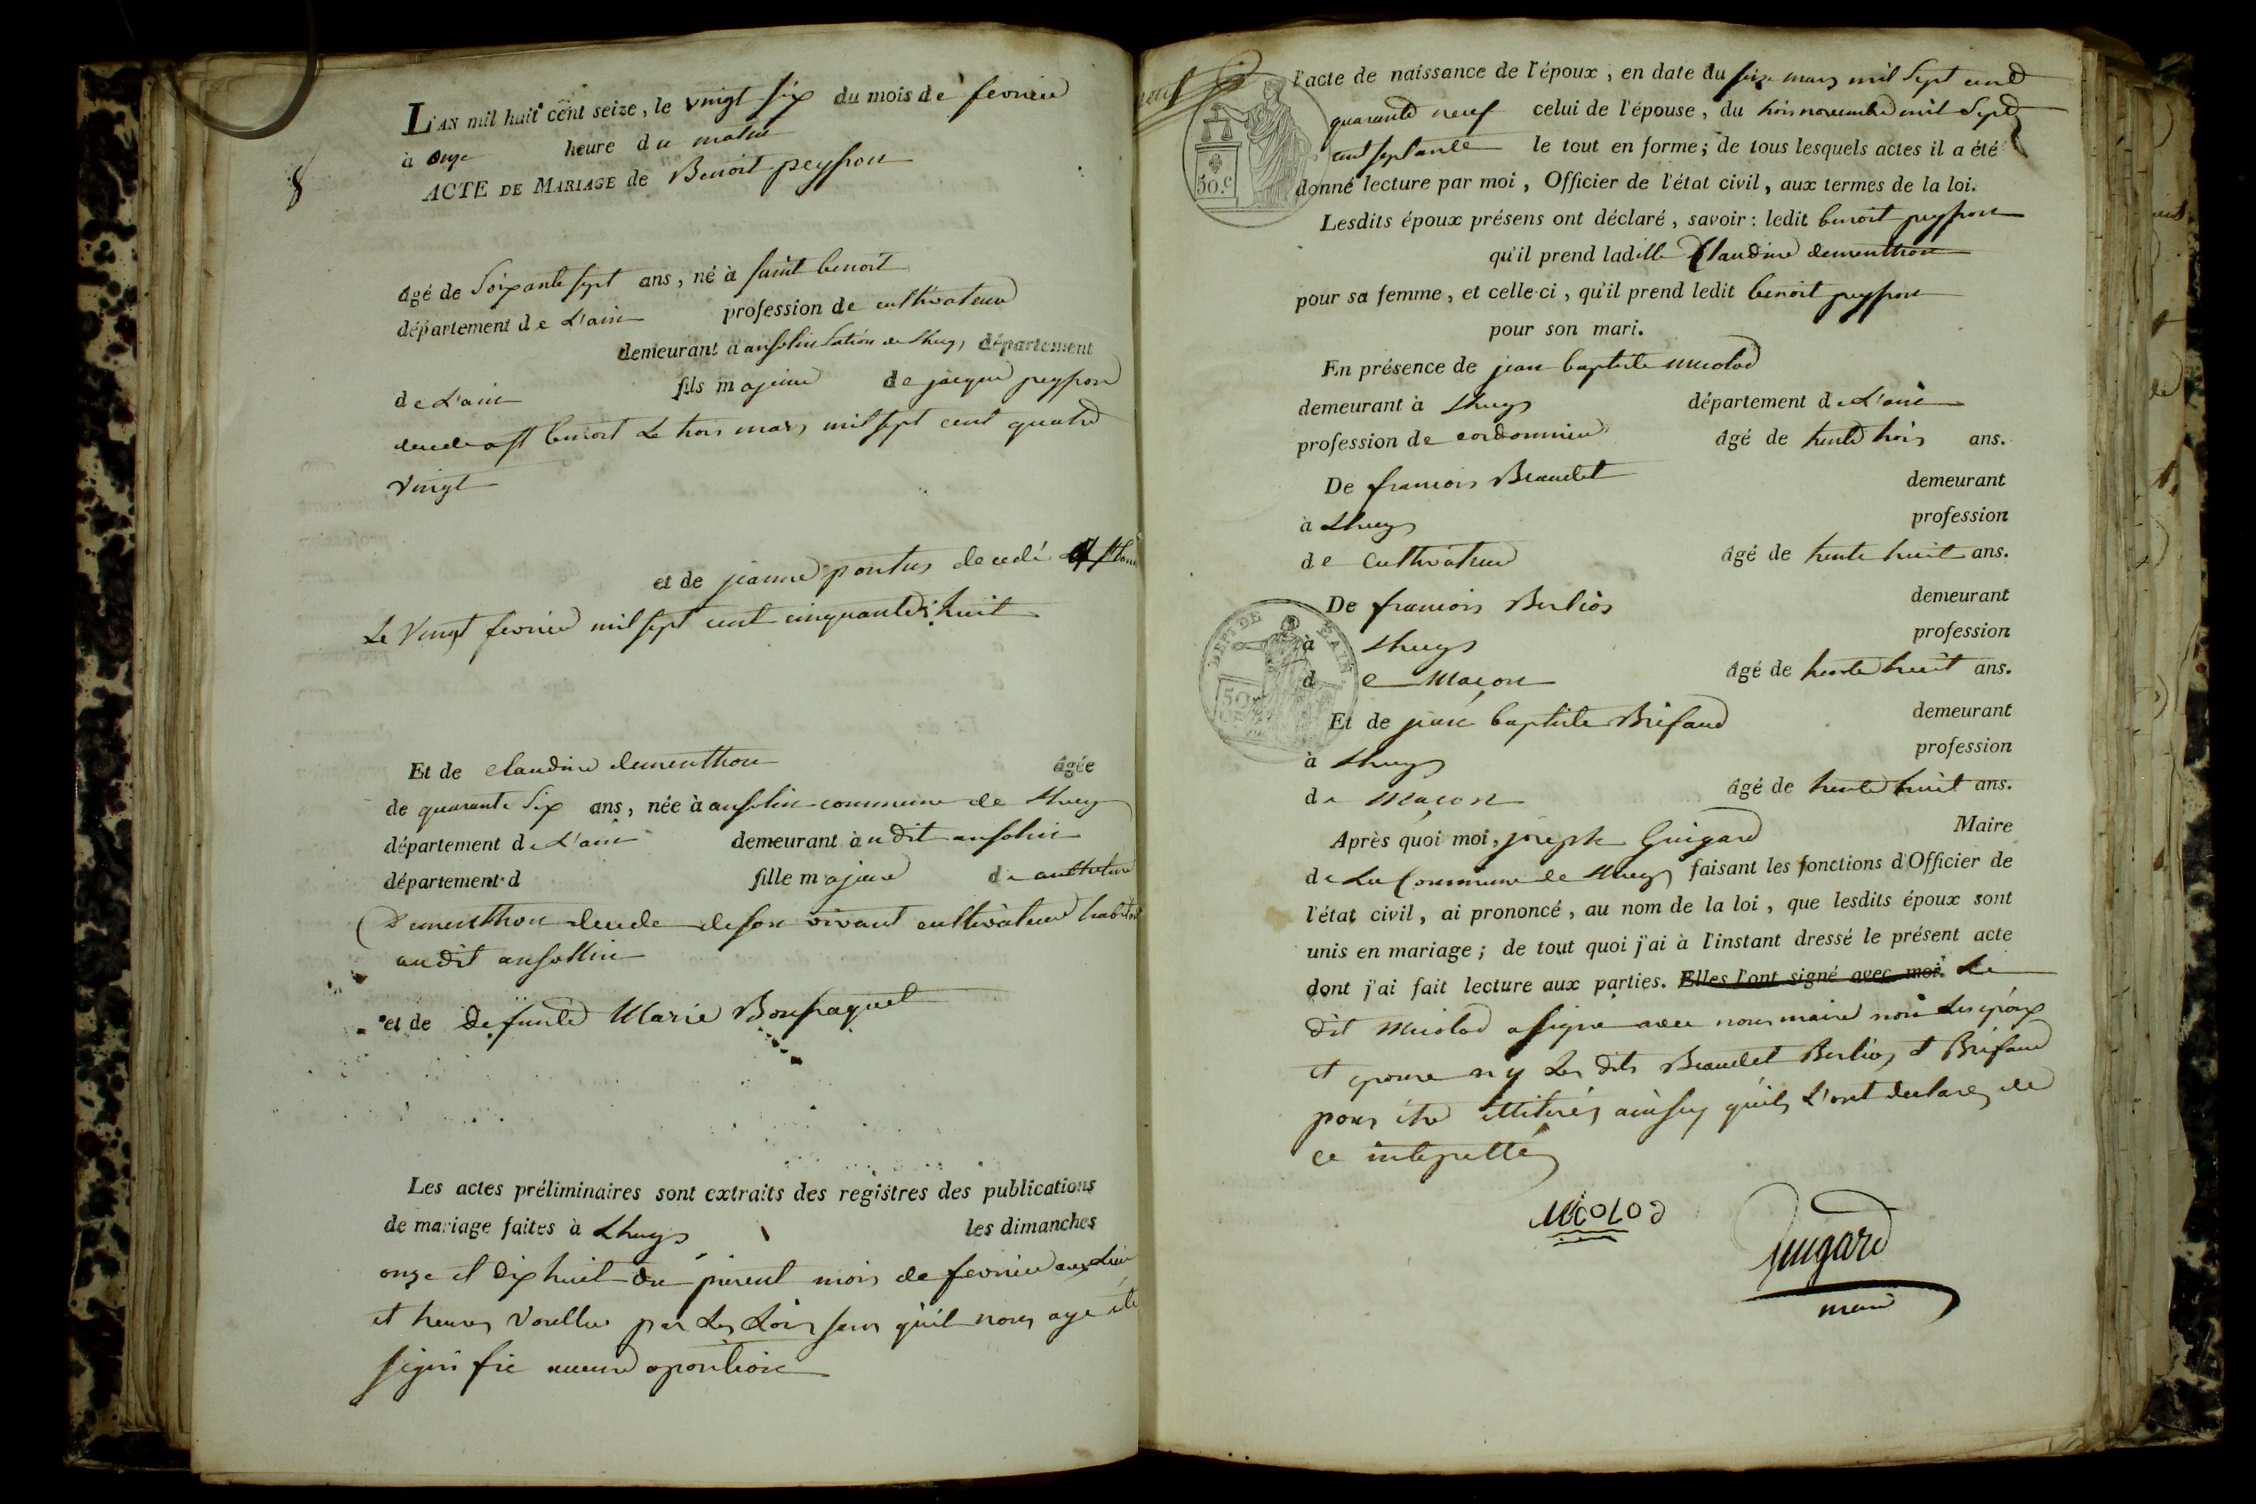 8
L'AN mil huit cent seize, le vingt six du mois de fevrier
à onze heure du matin
ACTE DE MARIAGE de Benoit peysson
âgé de Soixante sept ans, né à saint benoit
département de L'ain profession de cultivateur
demeurant à ansolin de Lhuys département
de L'ain fils majeur de jacque peysson
decede a st benoit Le trois mars mil sept cent quatre
vingt
et de jeanne pontus decedé
Le Vingt fevrier mil sept cent cinquante huit
Et de claudine dementhon âgée
de quarante six ans, née à ansolin commune de Lhuys
département de L'ain demeurant audit ansolin
département d fille majeure de
Dementhon decede de son vivant cultivateur habitant
audit ansollin
et de defunte Marie Bonpaquet
Les actes préliminaires sont extraits des registres des publications
de mariage faites à Lhuys les dimanches
onze et dix huit du present mois de fevrier aux Lieu
et heures Voullue par Les Lois sans qu'il nous aye été
signifie aucune oposition
l'acte de naissance de l'époux, en date du seize mars mil sept cent
quarante neuf celui de l'épouse, du trois novembre mil sept
cent septante le tout en forme; de tous lesquels actes il a été
donné lecture par moi, Officier de l'état civil, aux termes de la loi.
50.c
Lesdits époux présens ont déclaré, savoir: ledit benoit peysson
qu'il prend ladite Claudine dementhon
pour sa femme, et celle-ci, qu'il prend ledit benoit peysson
pour son mari.
En présence de jean baptiste micolod
demeurant à Lhuys département de L'ain
profession de cordonnier âgé de trente trois ans.
De francois Beaudet demeurant
à Lhuys profession
de cultivateur âgé de trente huit ans.
De francois Berlios demeurant
DEPT DE L'AIN.
à Lhuys profession
de Maçon âgé de trente huit ans.
50
Et de jean baptiste Brifaud demeurant
à Lhuys profession
de Maçon âgé de trente huit ans.
Après quoi moi, joseph Guigard Maire
de La Commune de Lhuys faisant les fonctions d'Officier de
l'état civil, ai prononcé, au nom de la loi, que lesdits époux sont
unis en mariage; de tout quoi j'ai à l'instant dressé le présent acte
dont j'ai fait lecture aux parties. Elles l'ont signé avec moi. Le
dit Micolod a signe avec nous maire non Les epoux
et epouse n y Les dits Beaudet Berlios et Brifaud
pour être illiterés ainsy qu'ils L'ont declarés de
ce interpellés
MICOLOD
Guigard
maire